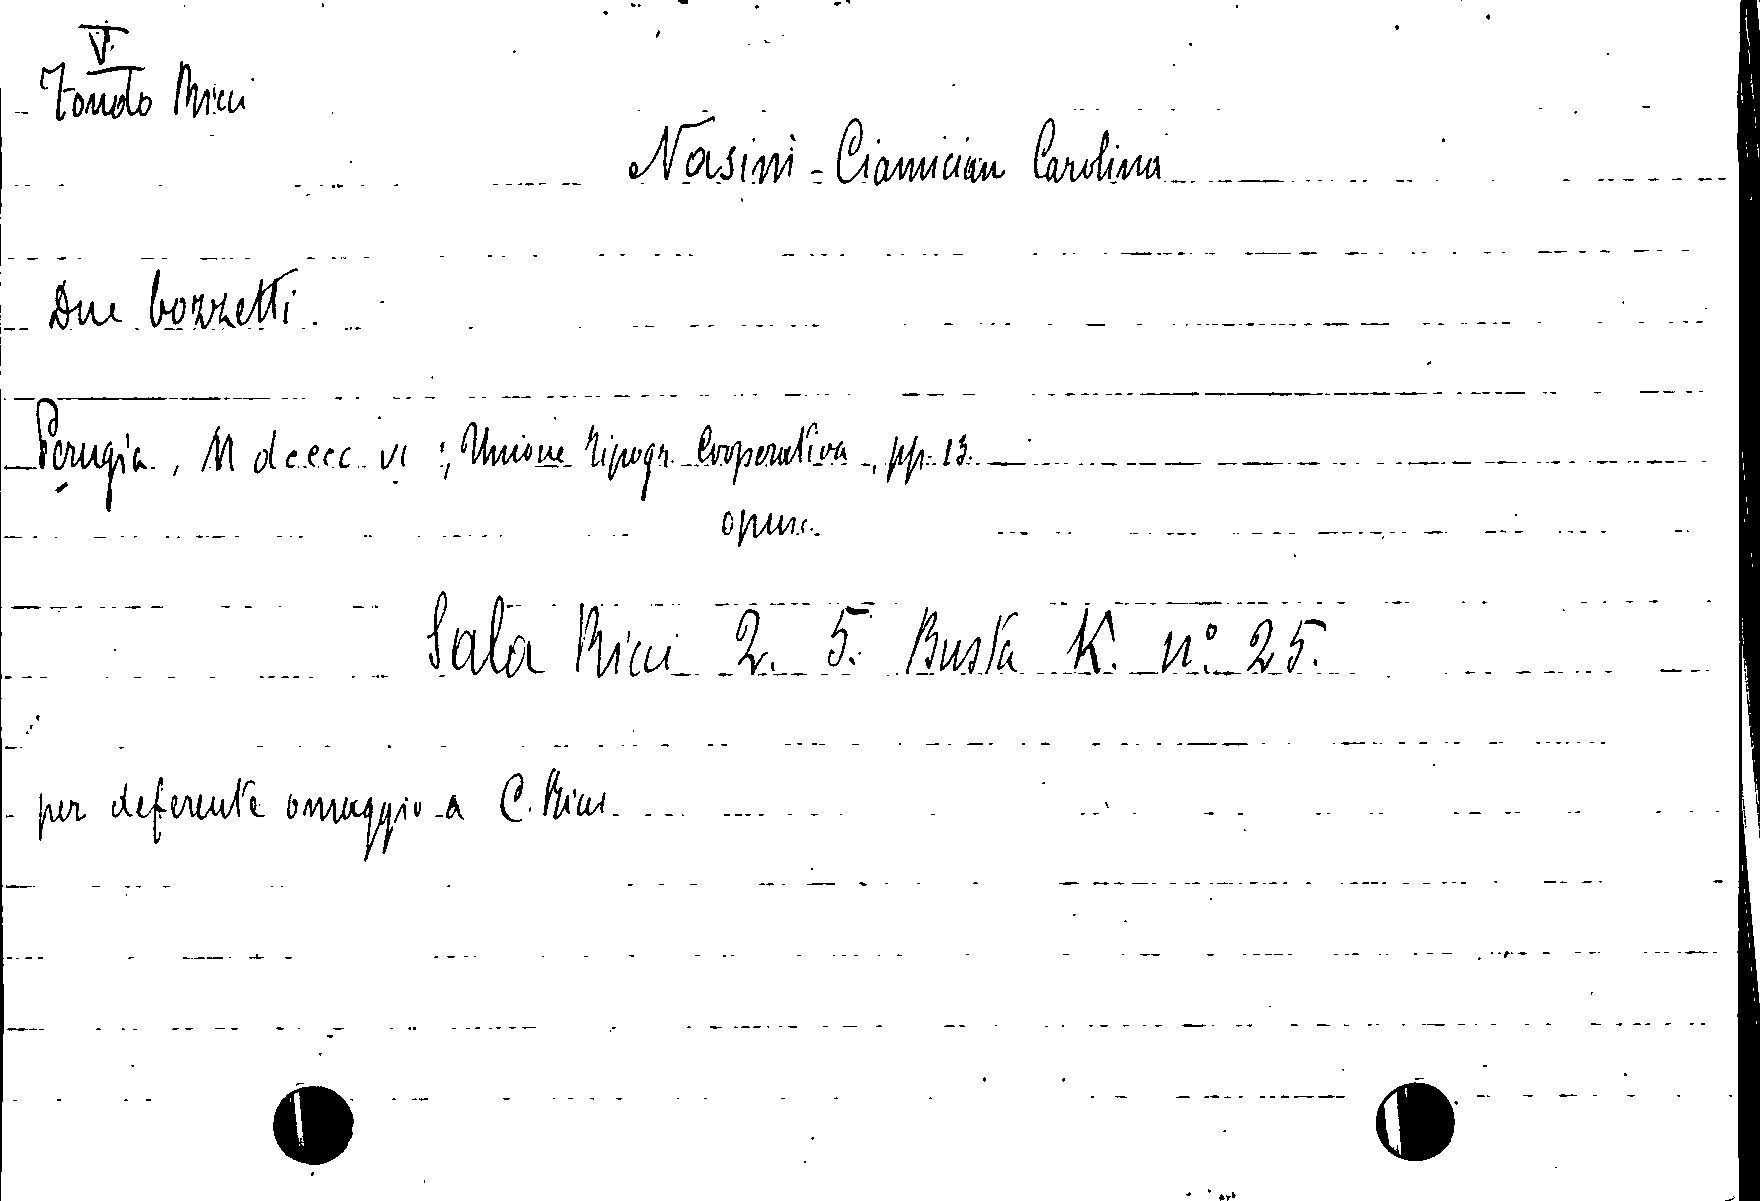 V
Fondo Ricci
Nasini - Ciamician Carolina
Due bozzetti.
Perugia, M dcccc vi ; Unione Tipogr. Cooperativa, pp. 13.
opusc.
Sala Ricci 2. 5. Busta K. n° 25.
per deferente omaggio a C. Ricci